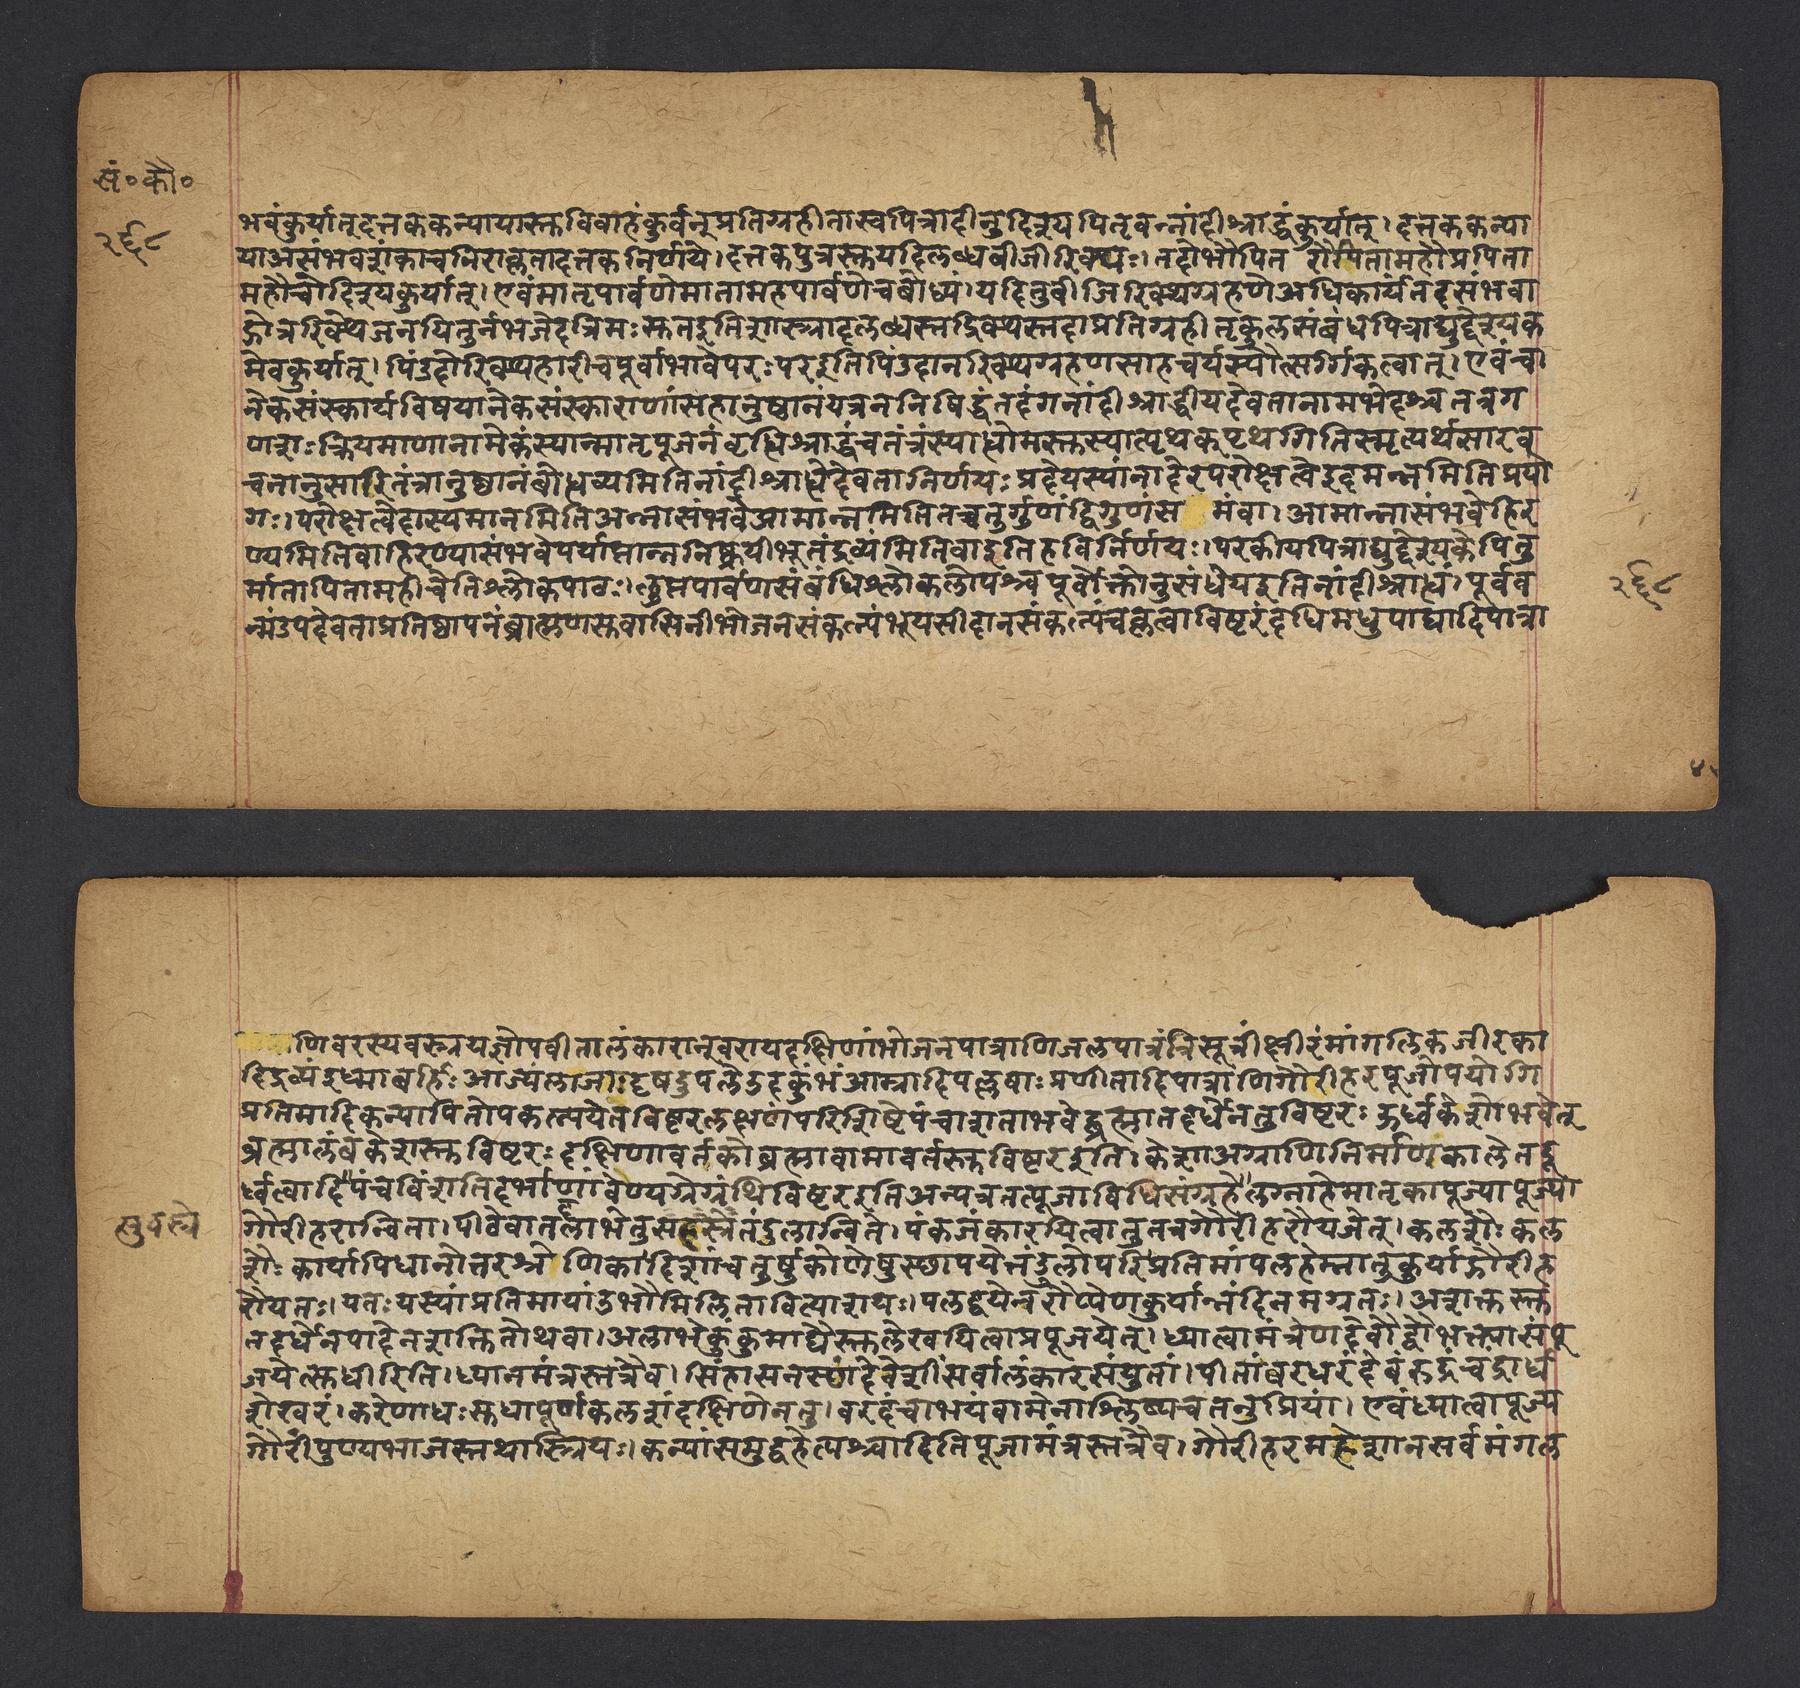 सं॰कौ॰
२६८
भवंकुर्यात्दत्तककन्यायास्तुविवाहंकुर्वन्प्रतिग्रहीतास्वपित्रादीनुद्दिश्यपितृवन्नांदीश्राद्धंकुर्यात्। दत्तककन्या
याअसंभवशंकाचनिराकृतादत्तकनिर्णये। दत्तकपुत्रस्तुयदिलब्धबीजीरिक्थः। तदोभौपित रौपितामहौप्रपिता
महौचोद्दिश्यकुर्यात्। एवंमातृपार्वणेमातामहपार्वणेचबोध्यं। यदितुबीजिरिक्थग्रहणेअधिकार्यंतरसंभवा
द्गोत्ररिक्थेजनयितुर्नभजेद्दत्रिमःसुतइतिशास्त्रादलब्धस्तद्रिक्थस्तदाप्रतिग्रहीतृकुलसंबंधेपित्राद्युद्देश्यक
मेवकुर्यात्। पिंडदोरिक्थहारीचपूर्वाभावेपरःपरइतिपिंडदानरिक्थग्रहणसाहचर्यस्यौत्सर्गिकत्वात्। एवंचा
नेकसंस्कार्यविषयानेकसंस्काराणांसहानुष्ठानंयत्रननिषिद्धंतदंगनांदीश्राद्धीयदेवतानामभेदश्चतत्रग
णशःक्रियमाणानामेकंस्यान्मातृपूजनंवृद्धिश्राद्धंचतंत्रंस्याद्धोमस्तुस्यात्पृथक्पृथगितिस्मृत्यर्थसारव
चनानुसारितंत्रानुष्ठानंबोद्धव्यमितिनांदीश्राद्धेदेवतानिर्णयः प्रदेयस्यांनादेरपरोक्षत्वेइदमन्नमितिप्रयो
गः। परोक्षत्वेदास्यमानमितिअन्नासंभवेआमान्नमितितच्चतुर्गुणंद्विगुणंस मंवा। आमान्नासंभवेहिर
ण्यमितिवाहिरण्यासंभवेपर्याप्तान्ननिष्क्रयीभूतंद्रव्यमितिवाइतिहविर्निर्णयः। परकीयपित्राद्युद्देश्यकेपितु
र्मातापितामहीचेतिश्लोकपाठः। लुप्तपार्वणसंबंधिश्लोकलोपश्चपूर्वोक्तोनुसंधेयइतिनांदीश्राद्धं। पूर्वव
न्मंडपदेवताप्रतिष्ठापनंब्राह्मणसुवासिनीभोजनसंकल्पंभूयसीदानसंकल्पंचकृत्वाविष्टरंदधिमधुपाद्यादिपात्रा
२६८
णिवरस्यवस्त्रयज्ञोपवीतालंकारान्वरायदक्षिणांभोजनपात्राणिजलपात्रंत्रिसूत्रींक्षीरंमांगलिकजीरका
दिद्रव्यंइध्माबर्हिःआज्यंलाजाःदृषदुपलेउदकुंभंआम्रादिपल्लवाःप्रणीतादिपात्राणिगौरीहरपूजोपयोगि
प्रतिमादिकन्यापितोपकल्पयेत्विष्टरलक्षणंपरिशिष्टेपंचाशताभवेद्ब्रह्मातदर्धेनतुविष्टरः ऊर्ध्वकेशोभवेत्
ब्रह्मालंबकेशस्तुविष्टरः दक्षिणावर्तकोब्रह्मावामावर्तस्तुविष्टरइति। केशाअग्राणिनिर्माणकालेतदू
र्ध्वत्वादि"पंचविंशतिदर्भाणांवेण्यग्रेग्रंथिविष्टरइतिअन्यत्रतत्पूजाविधिसंग्रहे"लग्नाहेमातृकापूज्यापूज्यौ
गौरीहरान्विता। पीठेवातलाभेतुसहस्रेतंडुलान्विते। पंकजंकारयित्वातुतत्रगौरीहरौयजेत्। कलशैःकल
शैःकार्यापिधानोत्तरश्रे णिकादिशांचतुर्षुकोणेषुस्थापयेत्तंडुलोपरिप्रतिमांपलहेम्नातुकुर्याद्गौरीह
रौयतः। यतःयस्यांप्रतिमायांउभौमिलितावित्याशयः। पलद्वयेनरौप्येणकुर्यान्नंदिनमग्रतः। अत्राक्तस्तु
तदर्धेनपादेनशक्तितोथवा। अलाभेकुंकुमाद्यैस्तुलेखयित्वाप्रपूजयेत्। ध्यात्वामंत्रेणदेवौद्वौभक्त्यासंपू
जयेत्सुधीरिति। ध्यानमंत्रस्तत्रैव। सिंहासनस्थांदेवेशींसर्वालंकारसंयुतां। पीतांबरधरंदेवंरुद्रंचंद्रार्ध
शेखरं। करेणाधःसुधापूर्णंकलशंदक्षिणेनतु। वरदंचाभयंवामेनाश्लिष्यचतनुप्रियां। एवंध्यात्वापूज्य
गौरींपुण्यभाजस्तथास्त्रियः। कन्यांसमुद्वहेत्पश्चादितिपूजामंत्रस्तत्रैव। गौरीहरमहेशानसर्वमंगल